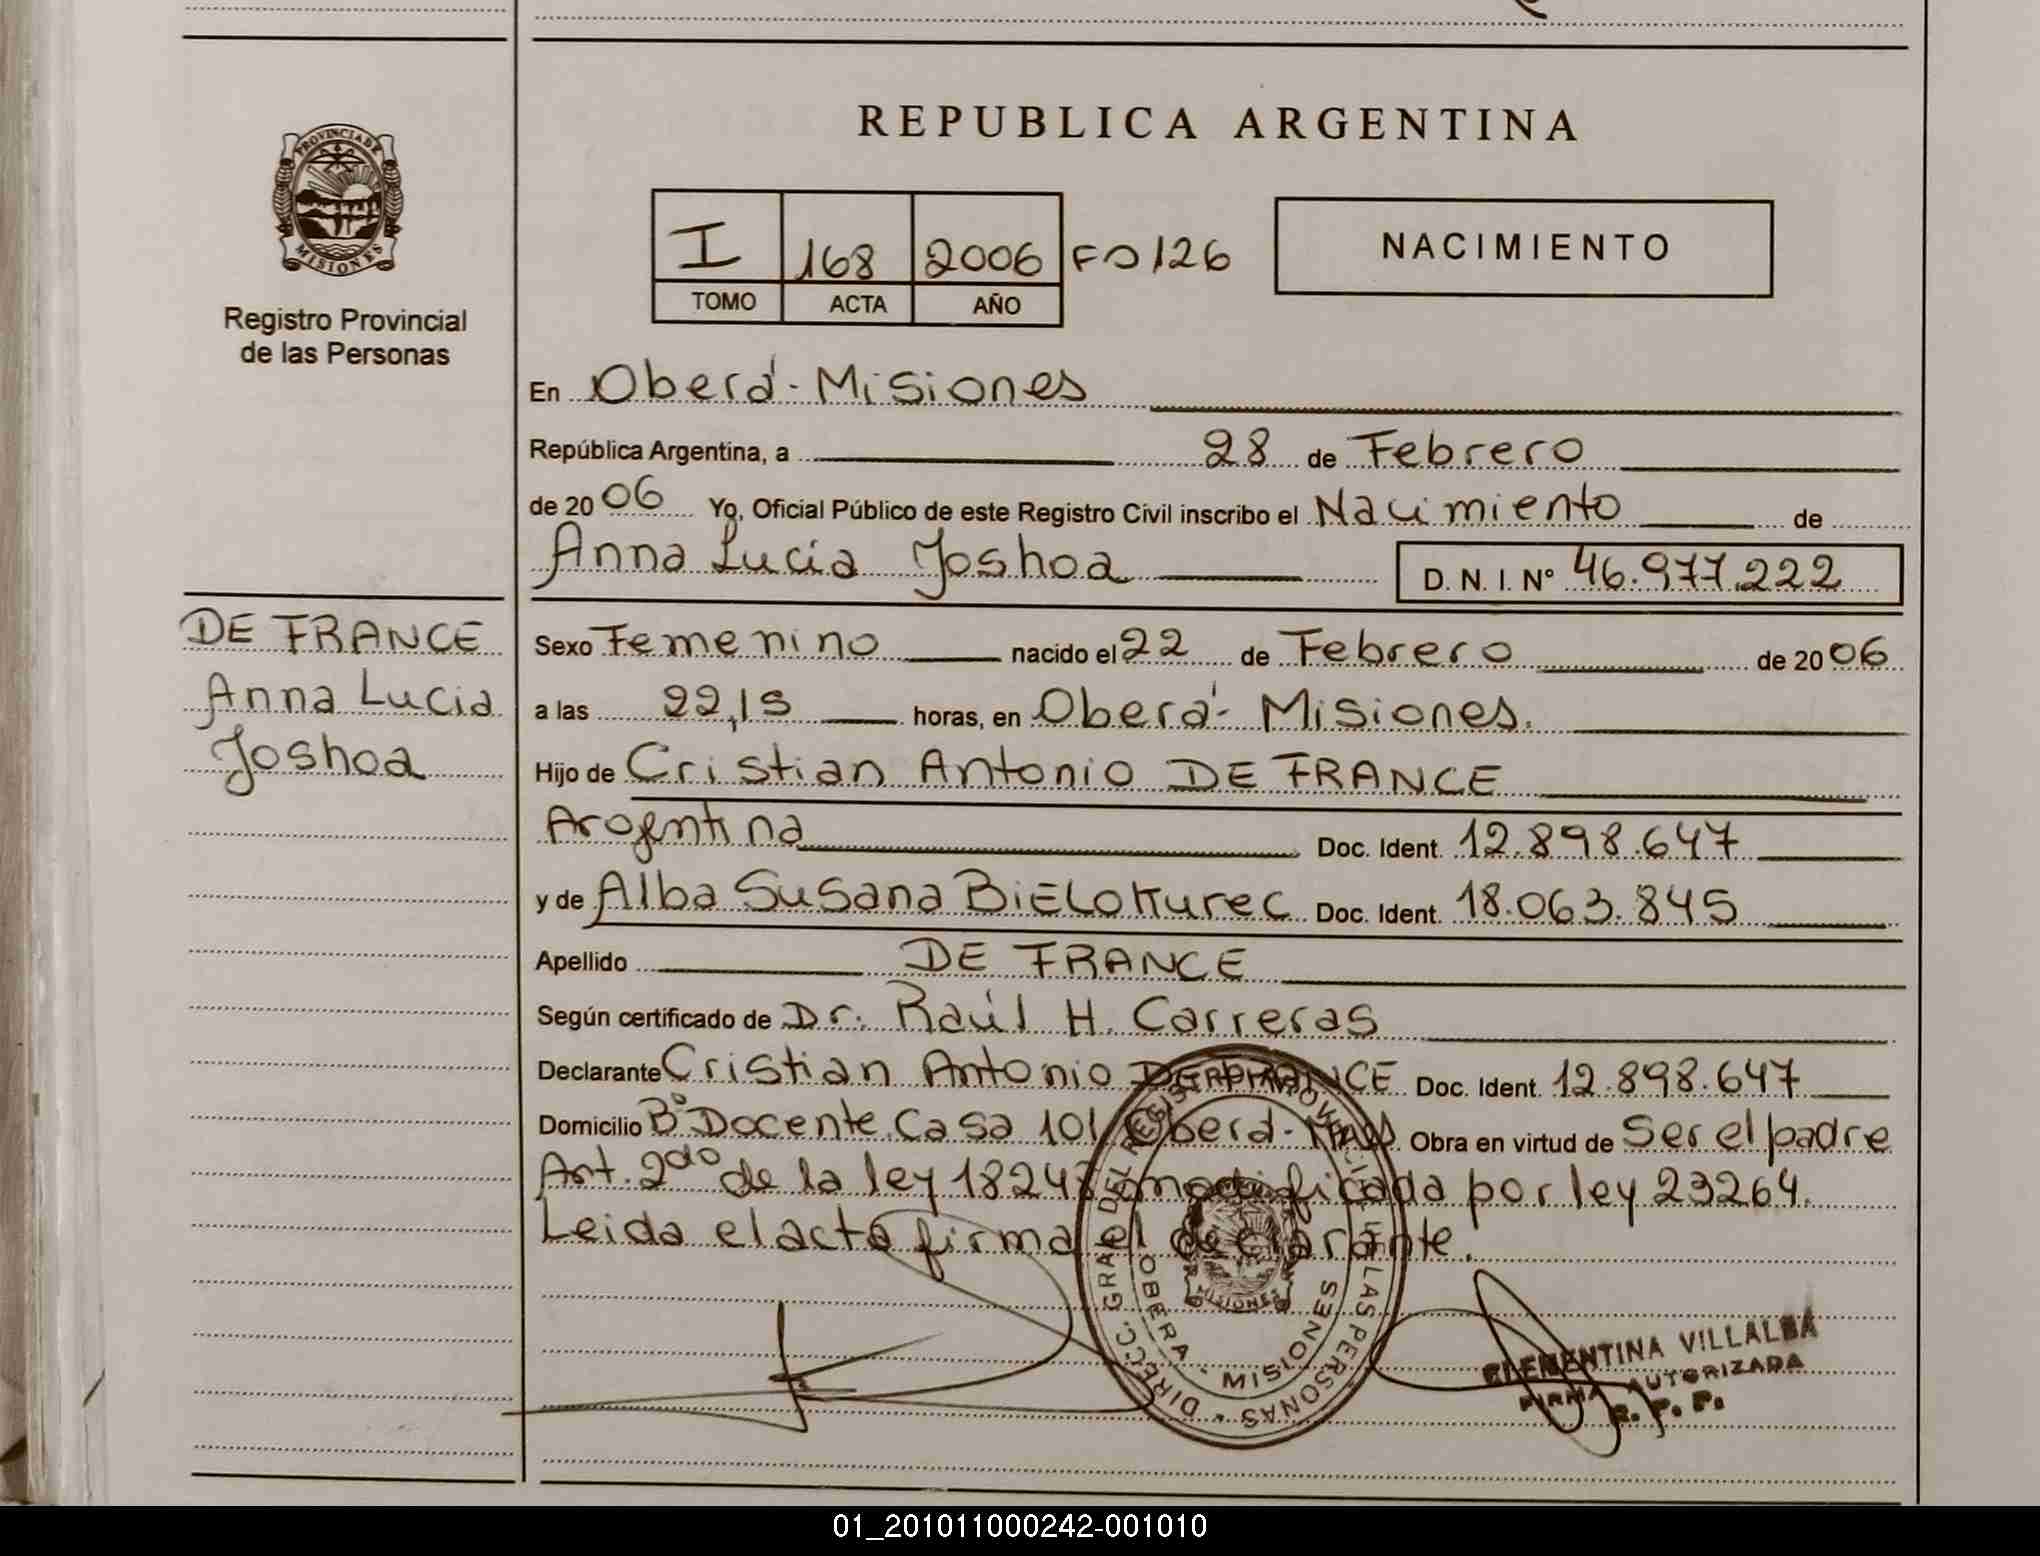 REPUBLICA ARGENTINA
PROVINCIA DE MISIONES
Registro Provincial
de las Personas
I 168 2006 Fo 126
TOMO ACTA AÑO
NACIMIENTO
En Oberá - Misiones
República Argentina, a 28 de Febrero
de 2006 Yo, Oficial Público de este Registro Civil inscribo el Nacimiento de
Anna Lucia Joshoa D. N. I. N° 46.977.222
DE FRANCE
Anna Lucia
Joshoa
Sexo Femenino nacido el 22 de Febrero de 2006
a las 22,15 horas, en Oberá - Misiones.
Hijo de Cristian Antonio DE FRANCE
Argentina Doc. Ident. 12.898.647
y de Alba Susana BiELOKurec Doc. Ident. 18.063.845
Apellido DE FRANCE
Según certificado de Dr. Raúl H. Carreras
Declarante Cristian Antonio DE FRANCE Doc. Ident. 12.898.647
Domicilio B° Docente Casa 101 Oberá - Mnes Obra en virtud de Ser el padre
Art. 2do de la ley 18248 modificada por ley 23264.
Leida el acta firma el declarante.
DIRECC. GRAL DEL REGISTRO PROVINCIAL DE LAS PERSONAS
OBERA - MISIONES
MISIONES
CLEMENTINA VILLALBA
FIRMA AUTORIZADA
R. P. P.
01_201011000242-001010